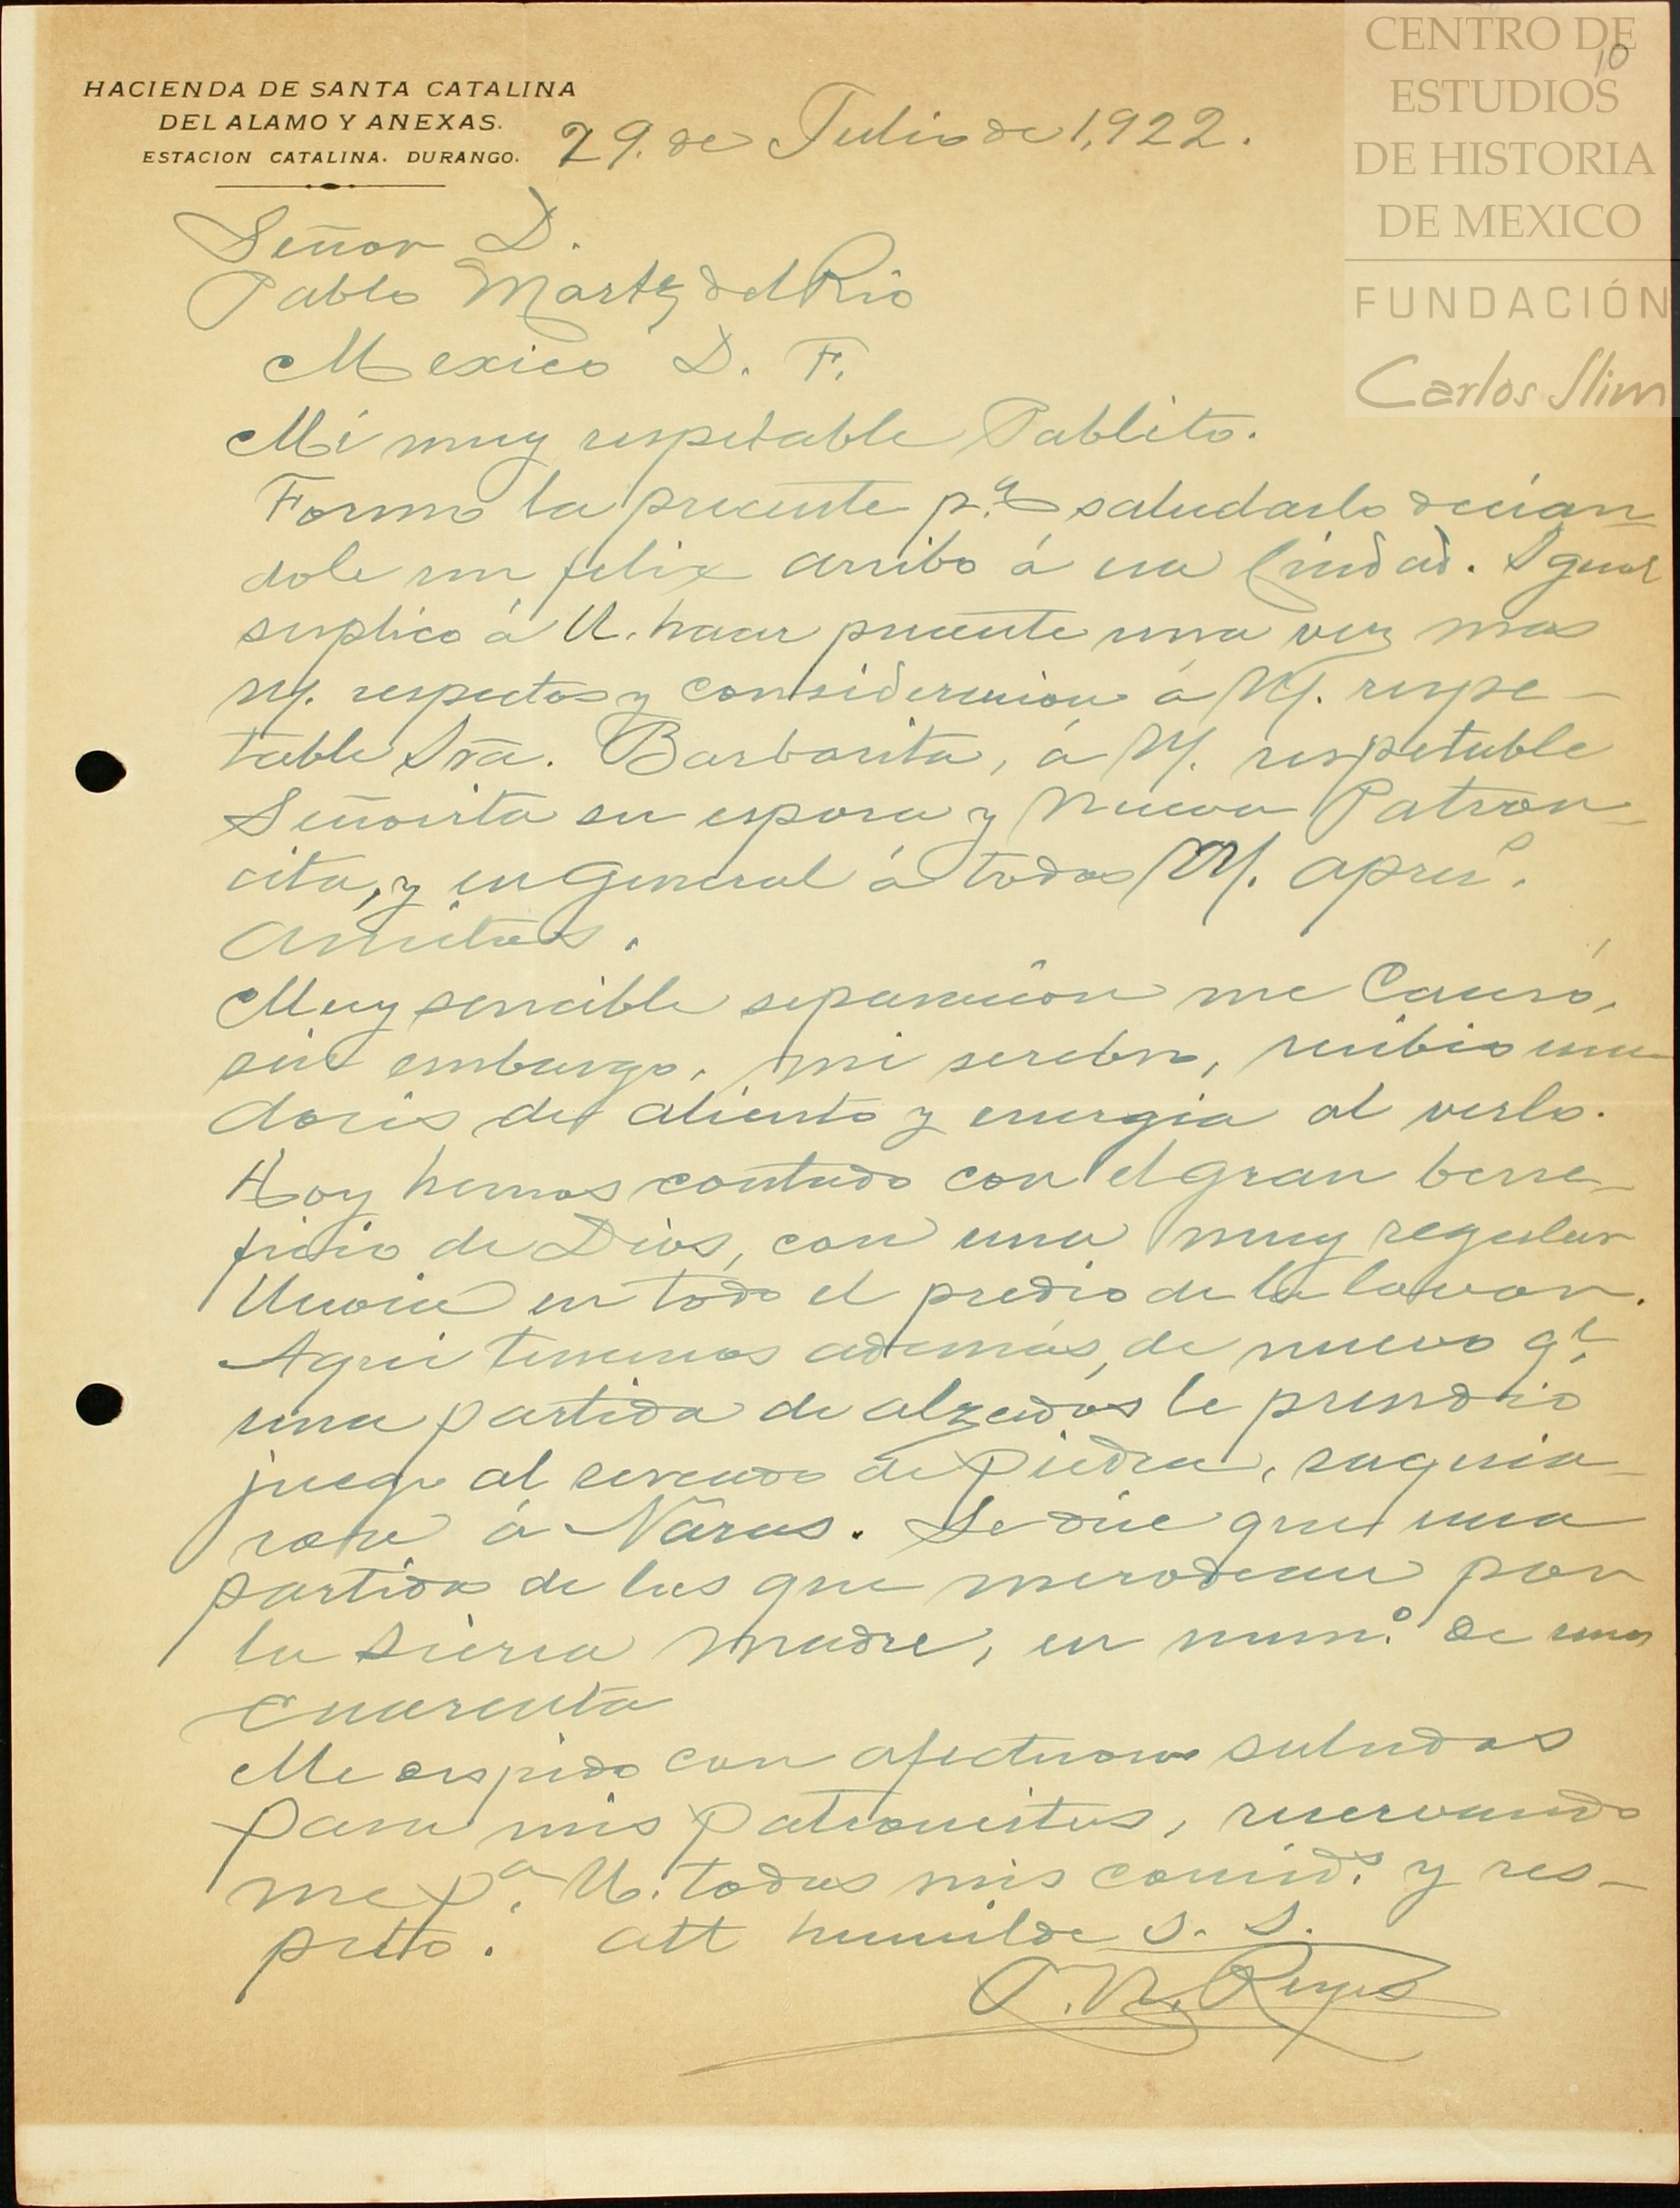 CENTRO DE
ESTUDIOS
DE HISTORIA
DE MEXICO
FUNDACIÓN
Carlos Slim
10
HACIENDA DE SANTA CATALINA
DEL ALAMO Y ANEXAS.
ESTACION CATALINA. DURANGO.
29. de Julio de 1,922.
Señor D.
Pablo Martz del Rio
Mexico D. F.
Mi muy respetable Pablito.
Formo la presente p.ª saludarlo decian
dole un felix arribo á esa Ciudad. Igual
suplico á U. hacer presente una vez mas
M. respectos y consideracion á M. respe-
table Sra. Barbarita, á M. respetable
Señorita su esposa y nueva Patron-
cita, y en General á todos M. aprec.
Amitos.
Muy sencible separación me Causó,
sin embargo, mi serebro, recibio una
docis de aliento y energia al verlo.
Hoy hemos contado con el gran bene-
ficio de Dios, con una muy regular
lluvia en todo el predio de la labor.
Aqui tenemos además, de nuevo q.e
una partida de alzados le prendio
juego al cercado de Piedra, saquia-
ron á Naras. Se dice que una
partida de los que merodean por
la Sierra Madre, en num.o de unos
cuarenta
Me despido con afectuosos saludos
para mis Patroncitos, reservando
me p.a U. todos mis considˢ. y res-
peto. att humilde S. S.
Reyes